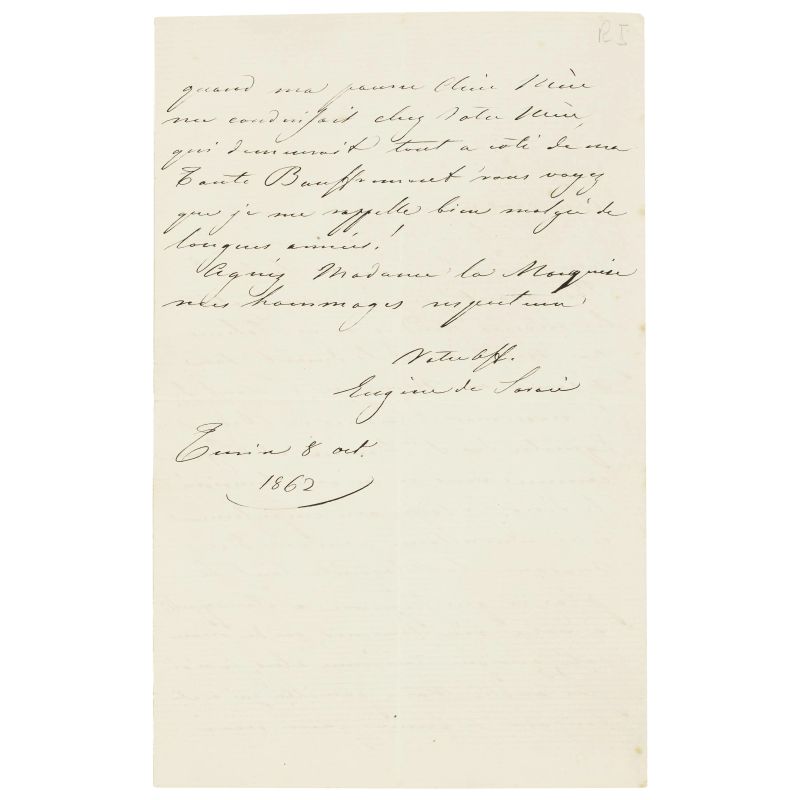 R I
quand ma pauvre Chère Mère
me conduisait chez Votre Mère
qui demeurait tout a côté de ma
Tante Bauffremont, vous voyez
que je me rappelle bien malgré de
longues années!
Agréez Madame la Marquise
mes hommages respectueux
Votre aff.
Eugène de Savoie
Turin 8 oct.
1862